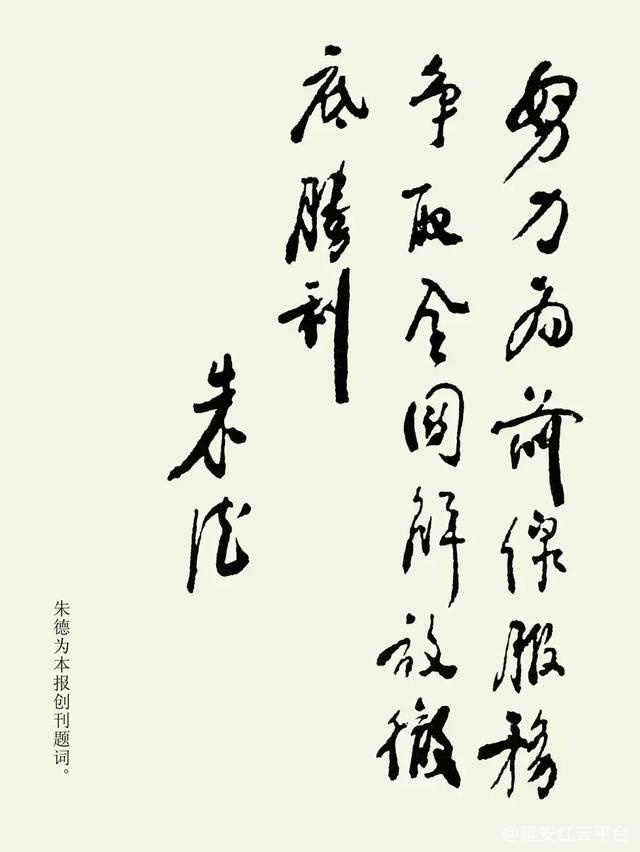 努力为前線服務
争取全国解放徹
底勝利
朱德
朱德为本报创刊题词。
@延安红云平台